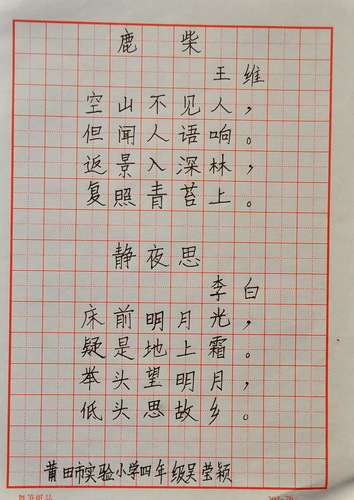 鹿柴
王维
空山不见人，
但闻人语响。
返景入深林，
复照青苔上。
静夜思
李白
床前明月光，
疑是地上霜。
举头望明月，
低头思故乡。
莆田市实验小学四年级吴莹颖